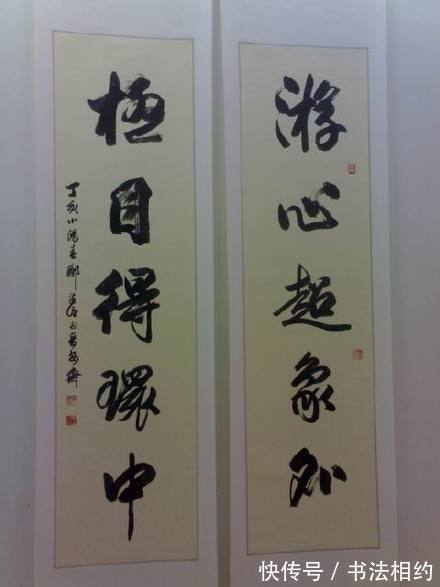 游心超象外
極目得環中
丁亥小陽春鄭
快传号 / 书法相约